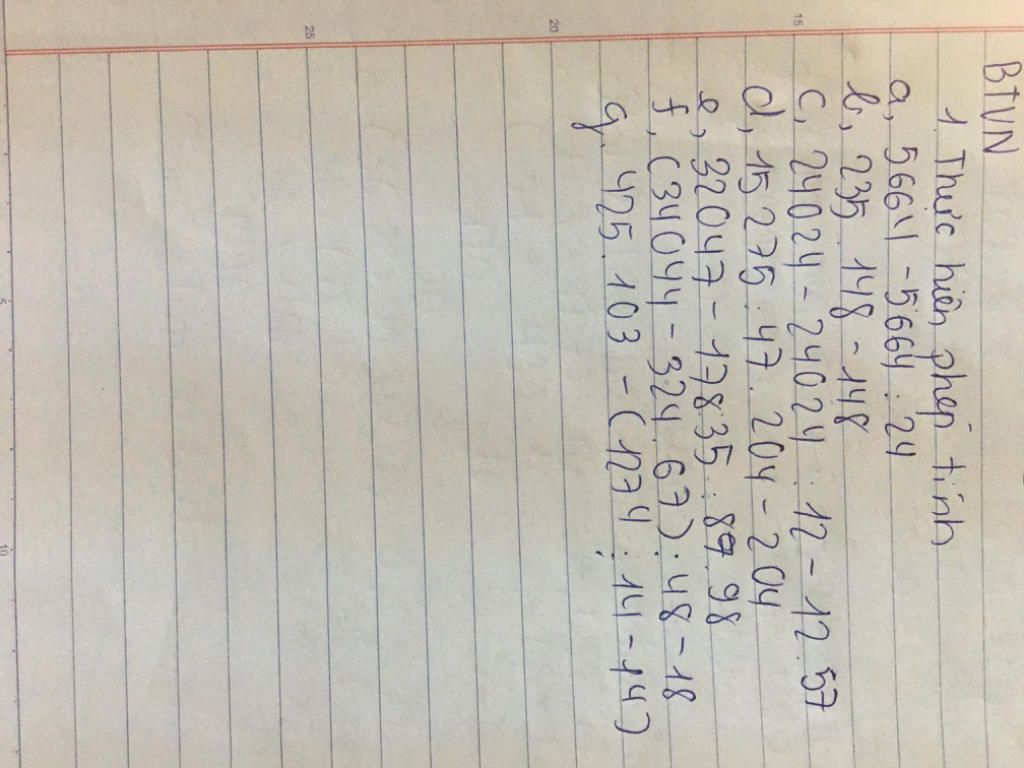 BTVN
1. Thực hiện phép tính
a, 5664 - 5664 : 24
b, 235 . 148 - 148
c, 24024 - 24024 : 12 - 12 . 57
d, 15 275 : 47 . 204 - 204
e, 32047 - 17835 : 87 . 98
f, (34044 - 324 . 67) : 48 - 18
g, 425 . 103 - (1274 : 14 - 14)
15
20
25
5
10